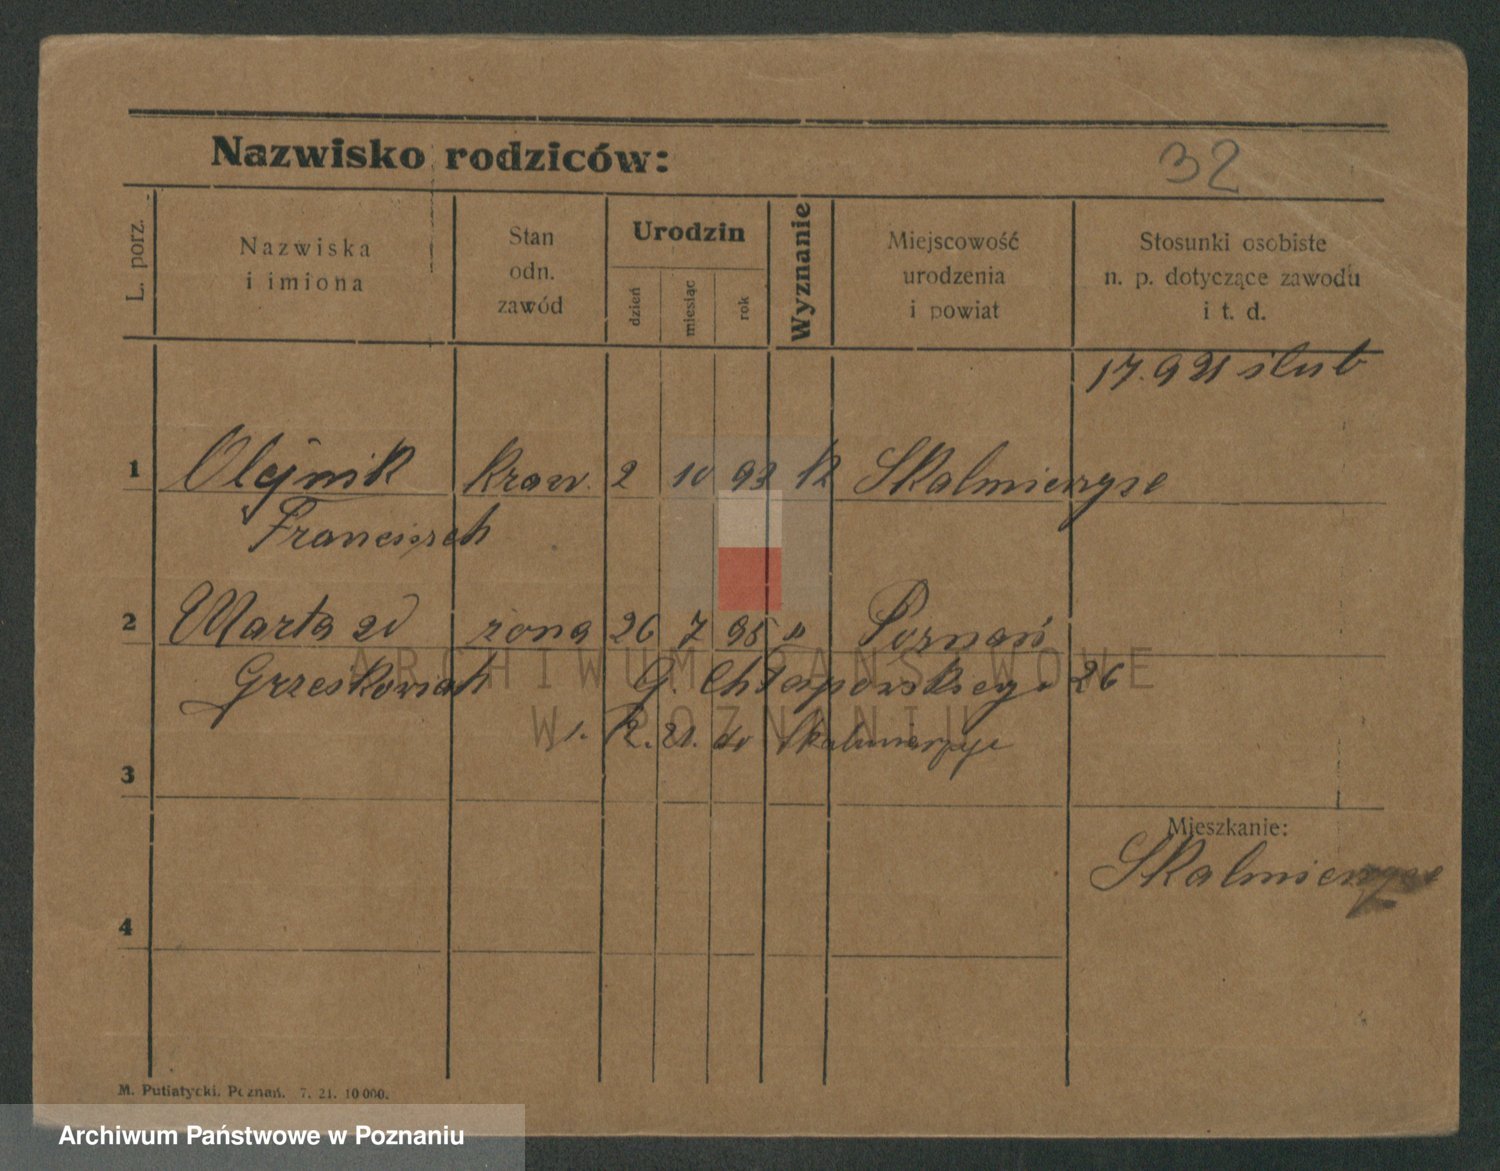 32
Nazwisko rodziców:
L. porz.
Nazwiska
i imiona
Stan
odn.
zawód
Urodzin
dzień
miesiąc
rok
Wyznanie
Miejscowość
urodzenia
i powiat
Stosunki osobiste
n. p. dotyczące zawodu
i t. d.
17.9 21 ślub
1 Olejnik kraw. 2 10 93 k Skalmierzyce
Franciszek
2 Marta zd żona 26 7 95 " Poznań
Grześkowiak G. Chłapowskiego 26
1. 12. 21. do Skalmierzyc
3
Mieszkanie:
Skalmierzyce
4
M. Putiatycki. Poznań. 7. 21. 10 000.
ARCHIWUM PAŃSTWOWE
W POZNANIU
Archiwum Państwowe w Poznaniu